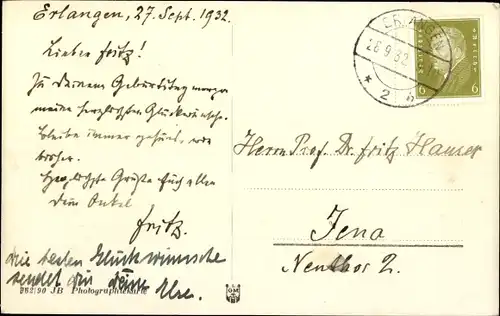 Erlangen, 27. Sept. 1932.
Lieber Fritz!
Zu Deinem Geburtstag morgen
meine herzlichsten Glückwünsche.
bleibe immer gesund, wie
bisher.
Herzlichste Grüße Euch allen
Dein Onkel
Fritz.
die besten Glückwünsche
sendet dir deine Else.
282/90 JB Photographiekarte
ERLANGEN
26.9.32
* 2 h
6 6
Herrn Prof. Dr. Fritz Hauser
Jena
2.